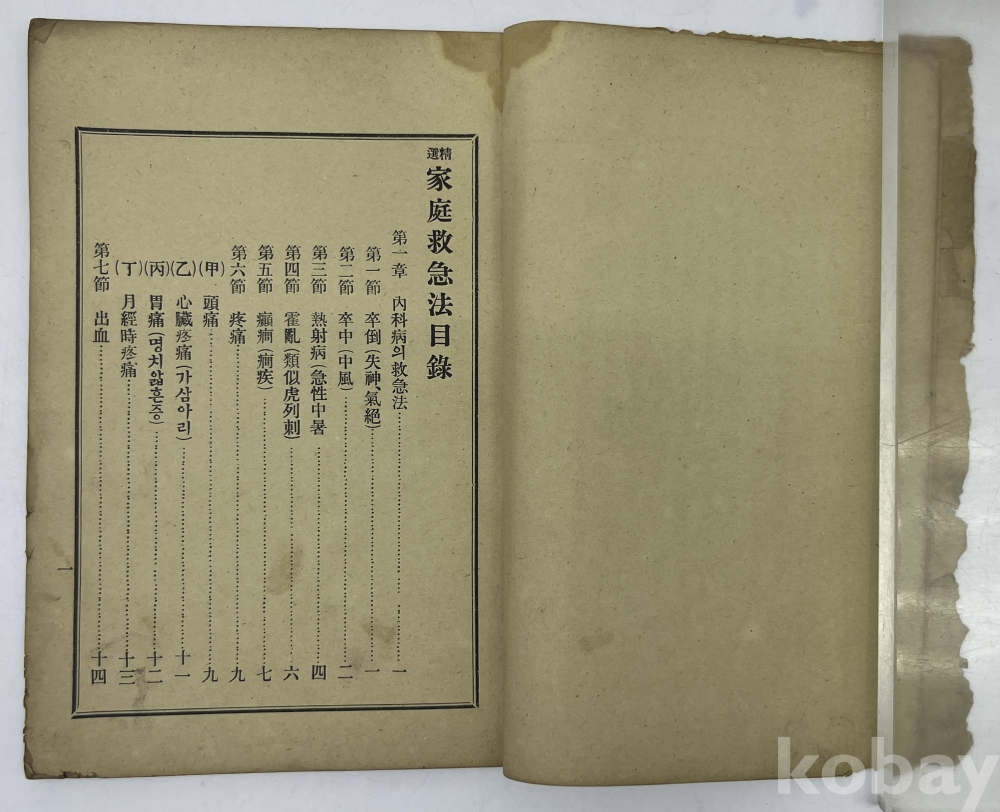 精選 家庭救急法目錄
第一章 內科病의救急法 一
第一節 卒倒(失神、氣絕) 一
第二節 卒中(中風) 二
第三節 熱射病(急性中暑 四
第四節 霍亂(類似虎列刺) 六
第五節 癲癎(癎疾) 七
第六節 疼痛 九
(甲) 頭痛 九
(乙) 心臟疼痛(가삼아리) 十一
(丙) 胃痛(명치앏흔증) 十二
(丁) 月經時疼痛 十三
第七節 出血 十四
一
kobay